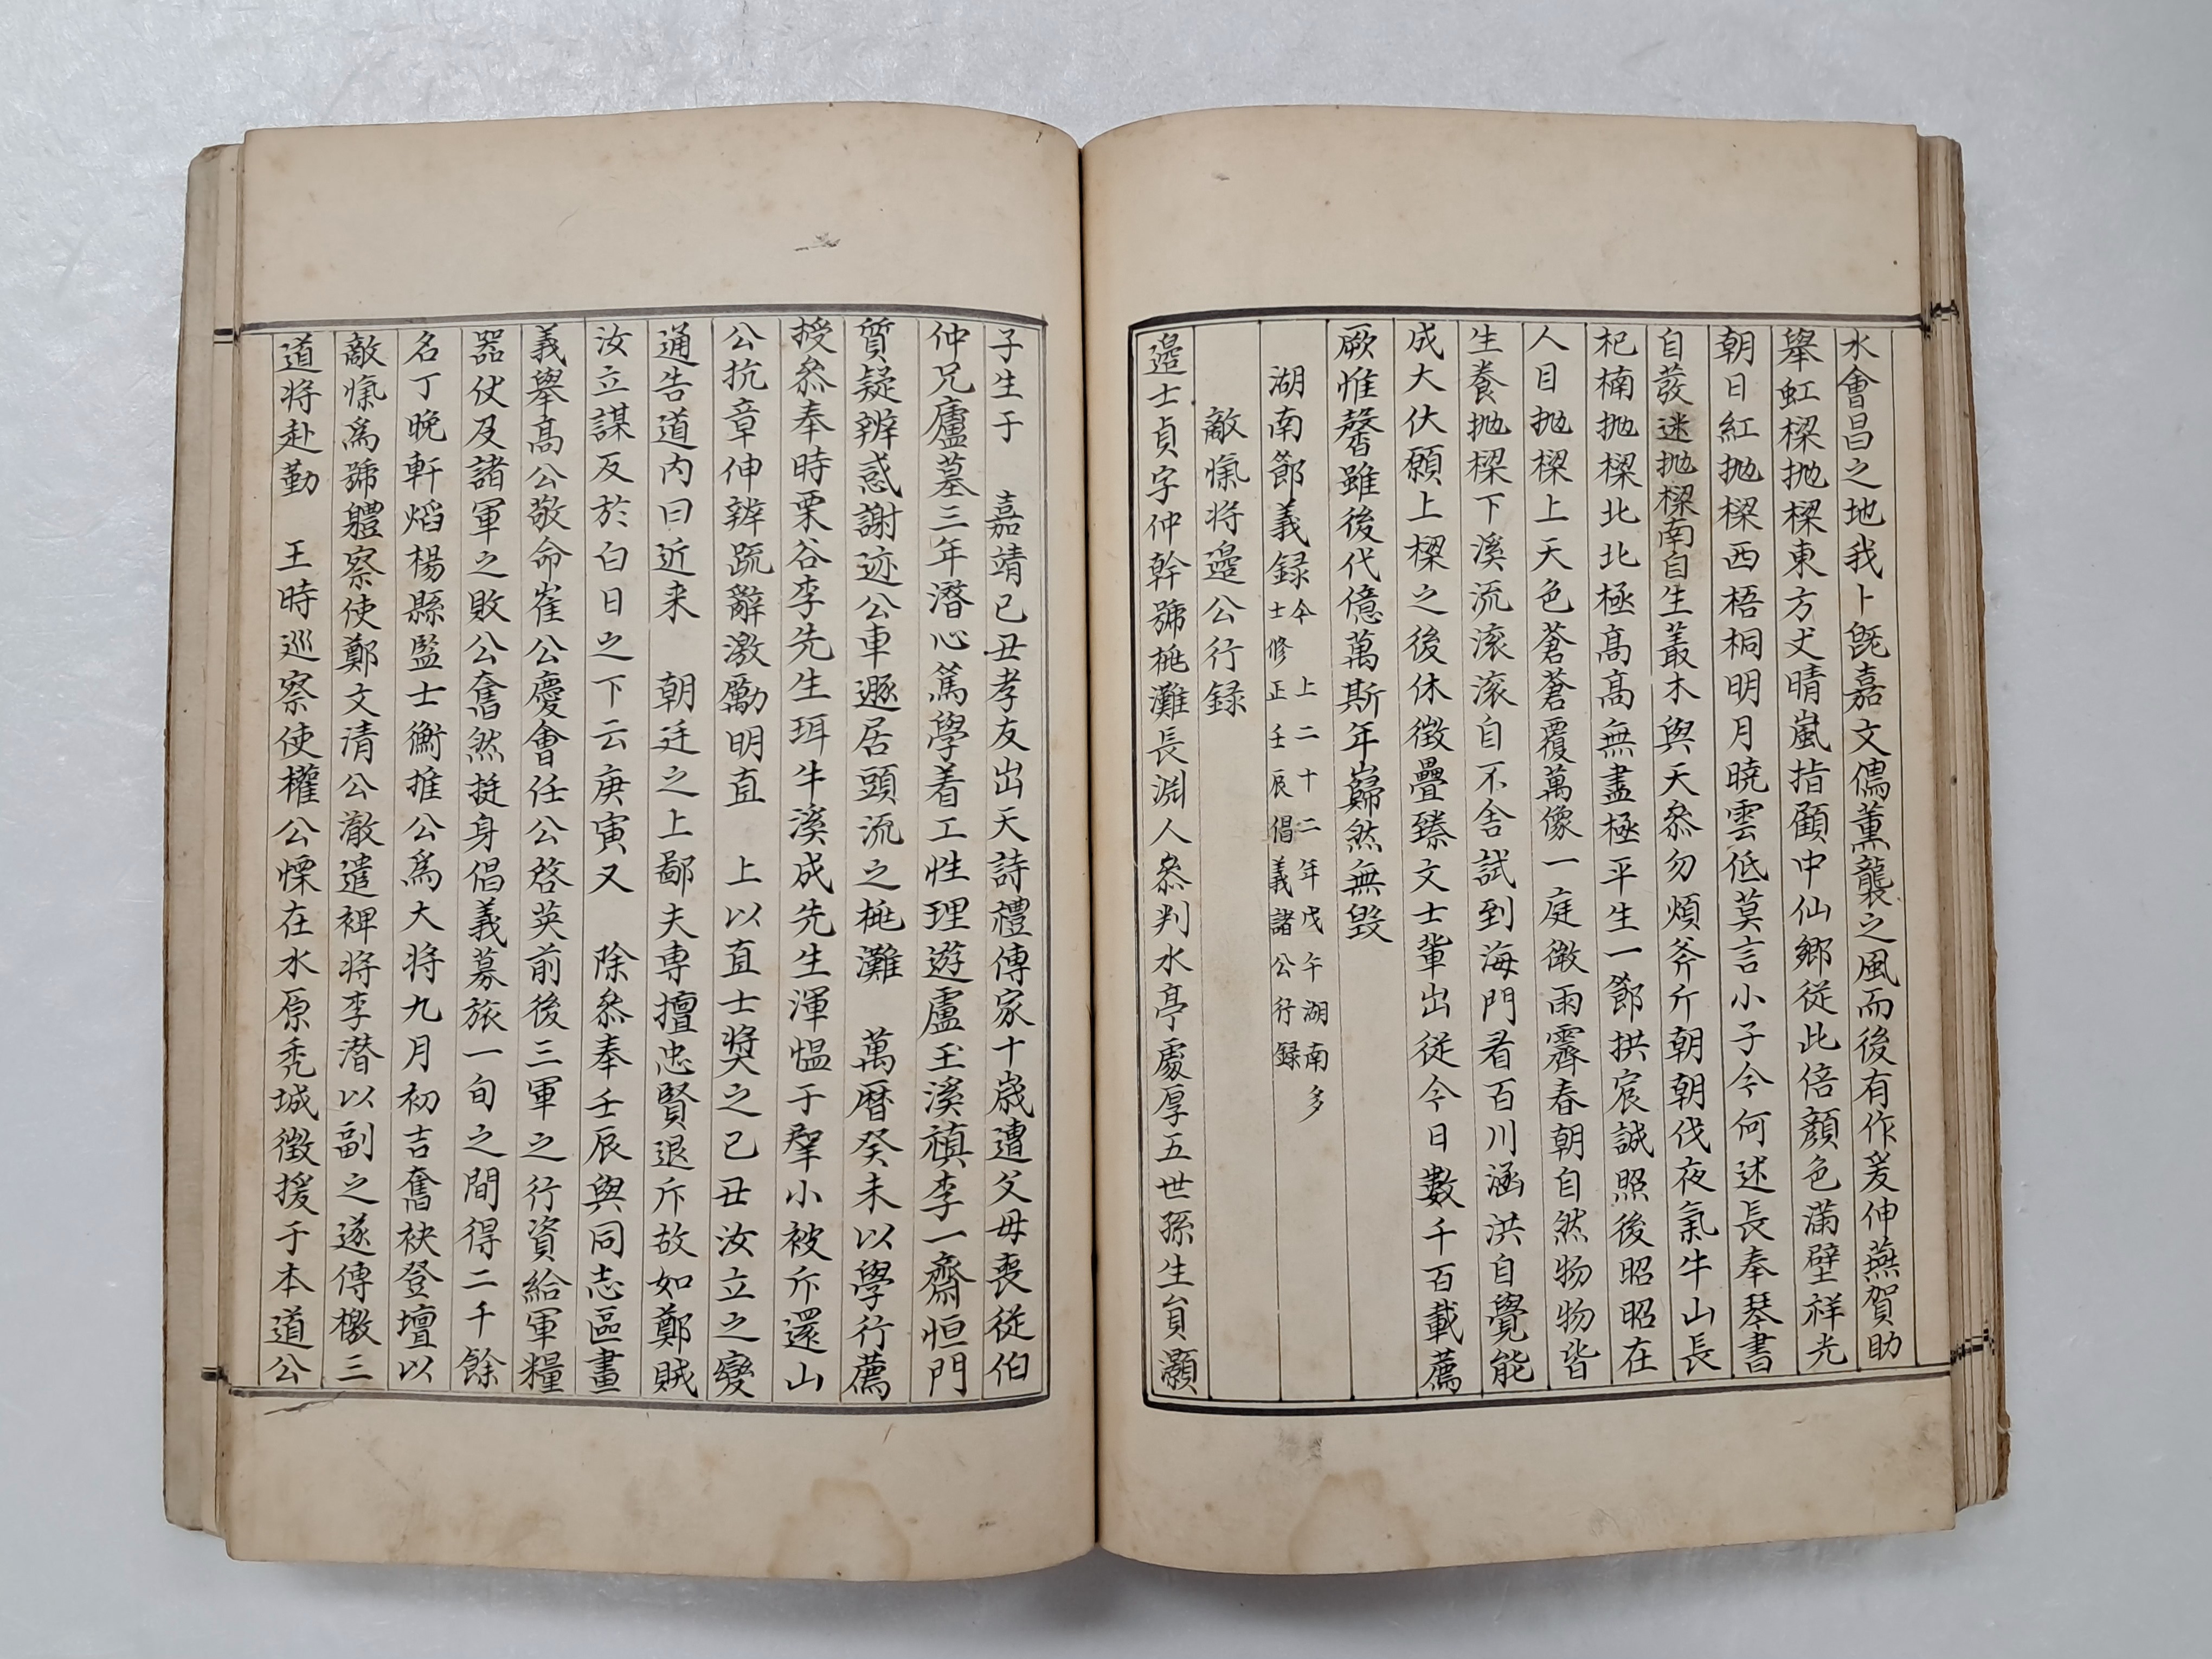 水會昌之地我卜旣嘉文儒薰襲之風而後有作爰伸燕賀助
舉虹樑抛樑東方丈晴嵐指顧中仙鄉從此倍顏色滿壁祥光
朝日紅抛樑西梧桐明月曉雲低莫言小子今何述長奉琴書
自發迷抛樑南自生叢木與天叅勿煩斧斤朝朝伐夜氣牛山長
杞楠抛樑北北極高高無盡極平生一節拱宸誠照後昭昭在
人目抛樑上天色蒼蒼覆萬像一庭微雨霽春朝自然物物皆
生養抛樑下溪流滚滚自不舍試到海門看百川涵洪自覺能
成大伏願上樑之後休徵疊臻文士輩出從今日數千百載薦
厥惟馨雖後代億萬斯年巋然無毀
湖南節義録今上二十二年戊午湖南多士修正壬辰倡義諸公行録
敵愾將邉公行録
邉士貞字仲幹號桃灘長淵人叅判水亭處厚五世孫生員灝
子生于 嘉靖己丑孝友出天詩禮傳家十歲遭父母喪從伯
仲兄廬墓三年潛心篤學着工性理遊盧玉溪禛李一齋恒門
質疑辨惑謝迹公車遯居頭流之桃灘 萬曆癸未以學行薦
授叅奉時栗谷李先生珥牛溪成先生渾愠于羣小被斥還山
公抗章伸辨䟽辭激勵明直 上以直士奬之己丑汝立之變
通告道内曰近来 朝廷之上鄙夫専擅忠賢退斥故如鄭賊
汝立謀反於白日之下云庚寅又 除叅奉壬辰與同志區畫
義舉高公敬命崔公慶會任公啓英前後三軍之行資給軍糧
器仗及諸軍之敗公奮然挺身倡義募旅一旬之間得二千餘
名丁晩軒熖楊縣監士衡推公爲大將九月初吉奮袂登壇以
敵愾爲號體察使鄭文清公澈遣裨將李潜以副之遂傳檄三
道將赴勤 王時巡察使權公慄在水原禿城徴援于本道公